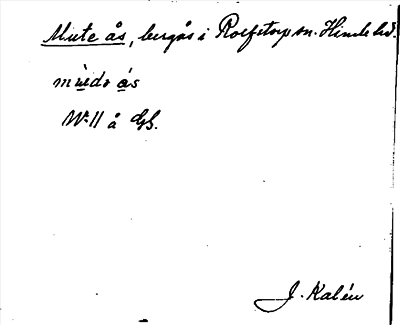 Mute ås, bergås i Rolfstorp sn. Himle hd.
mùdo ás
W. 11 å GS.
J. Kalén